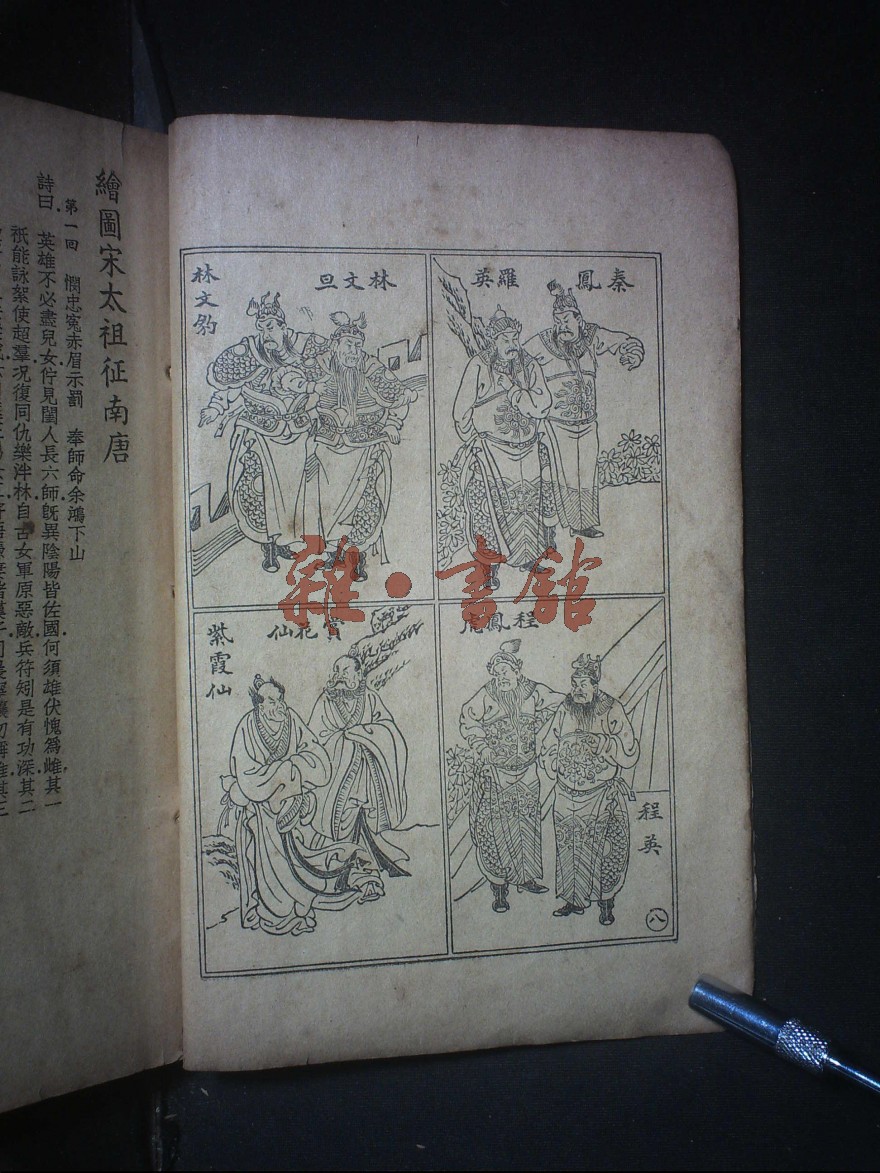 秦鳳
羅英
林文旦
林文豹
程鳳虎
程英
賞花仙
紫霞仙
八
雜·書館
繪圖宋太祖征南唐
第一回　憫忠寃赤眉示罰　奉師命余鴻下山
詩曰．英雄不必盡兒女仵見閨人長六師旣異陰陽皆佐國何須雄伏愧爲雌其一
祇能詠絮使超羣況復同仇樂泮林自古女軍原惡敵兵符矧是有功深其二